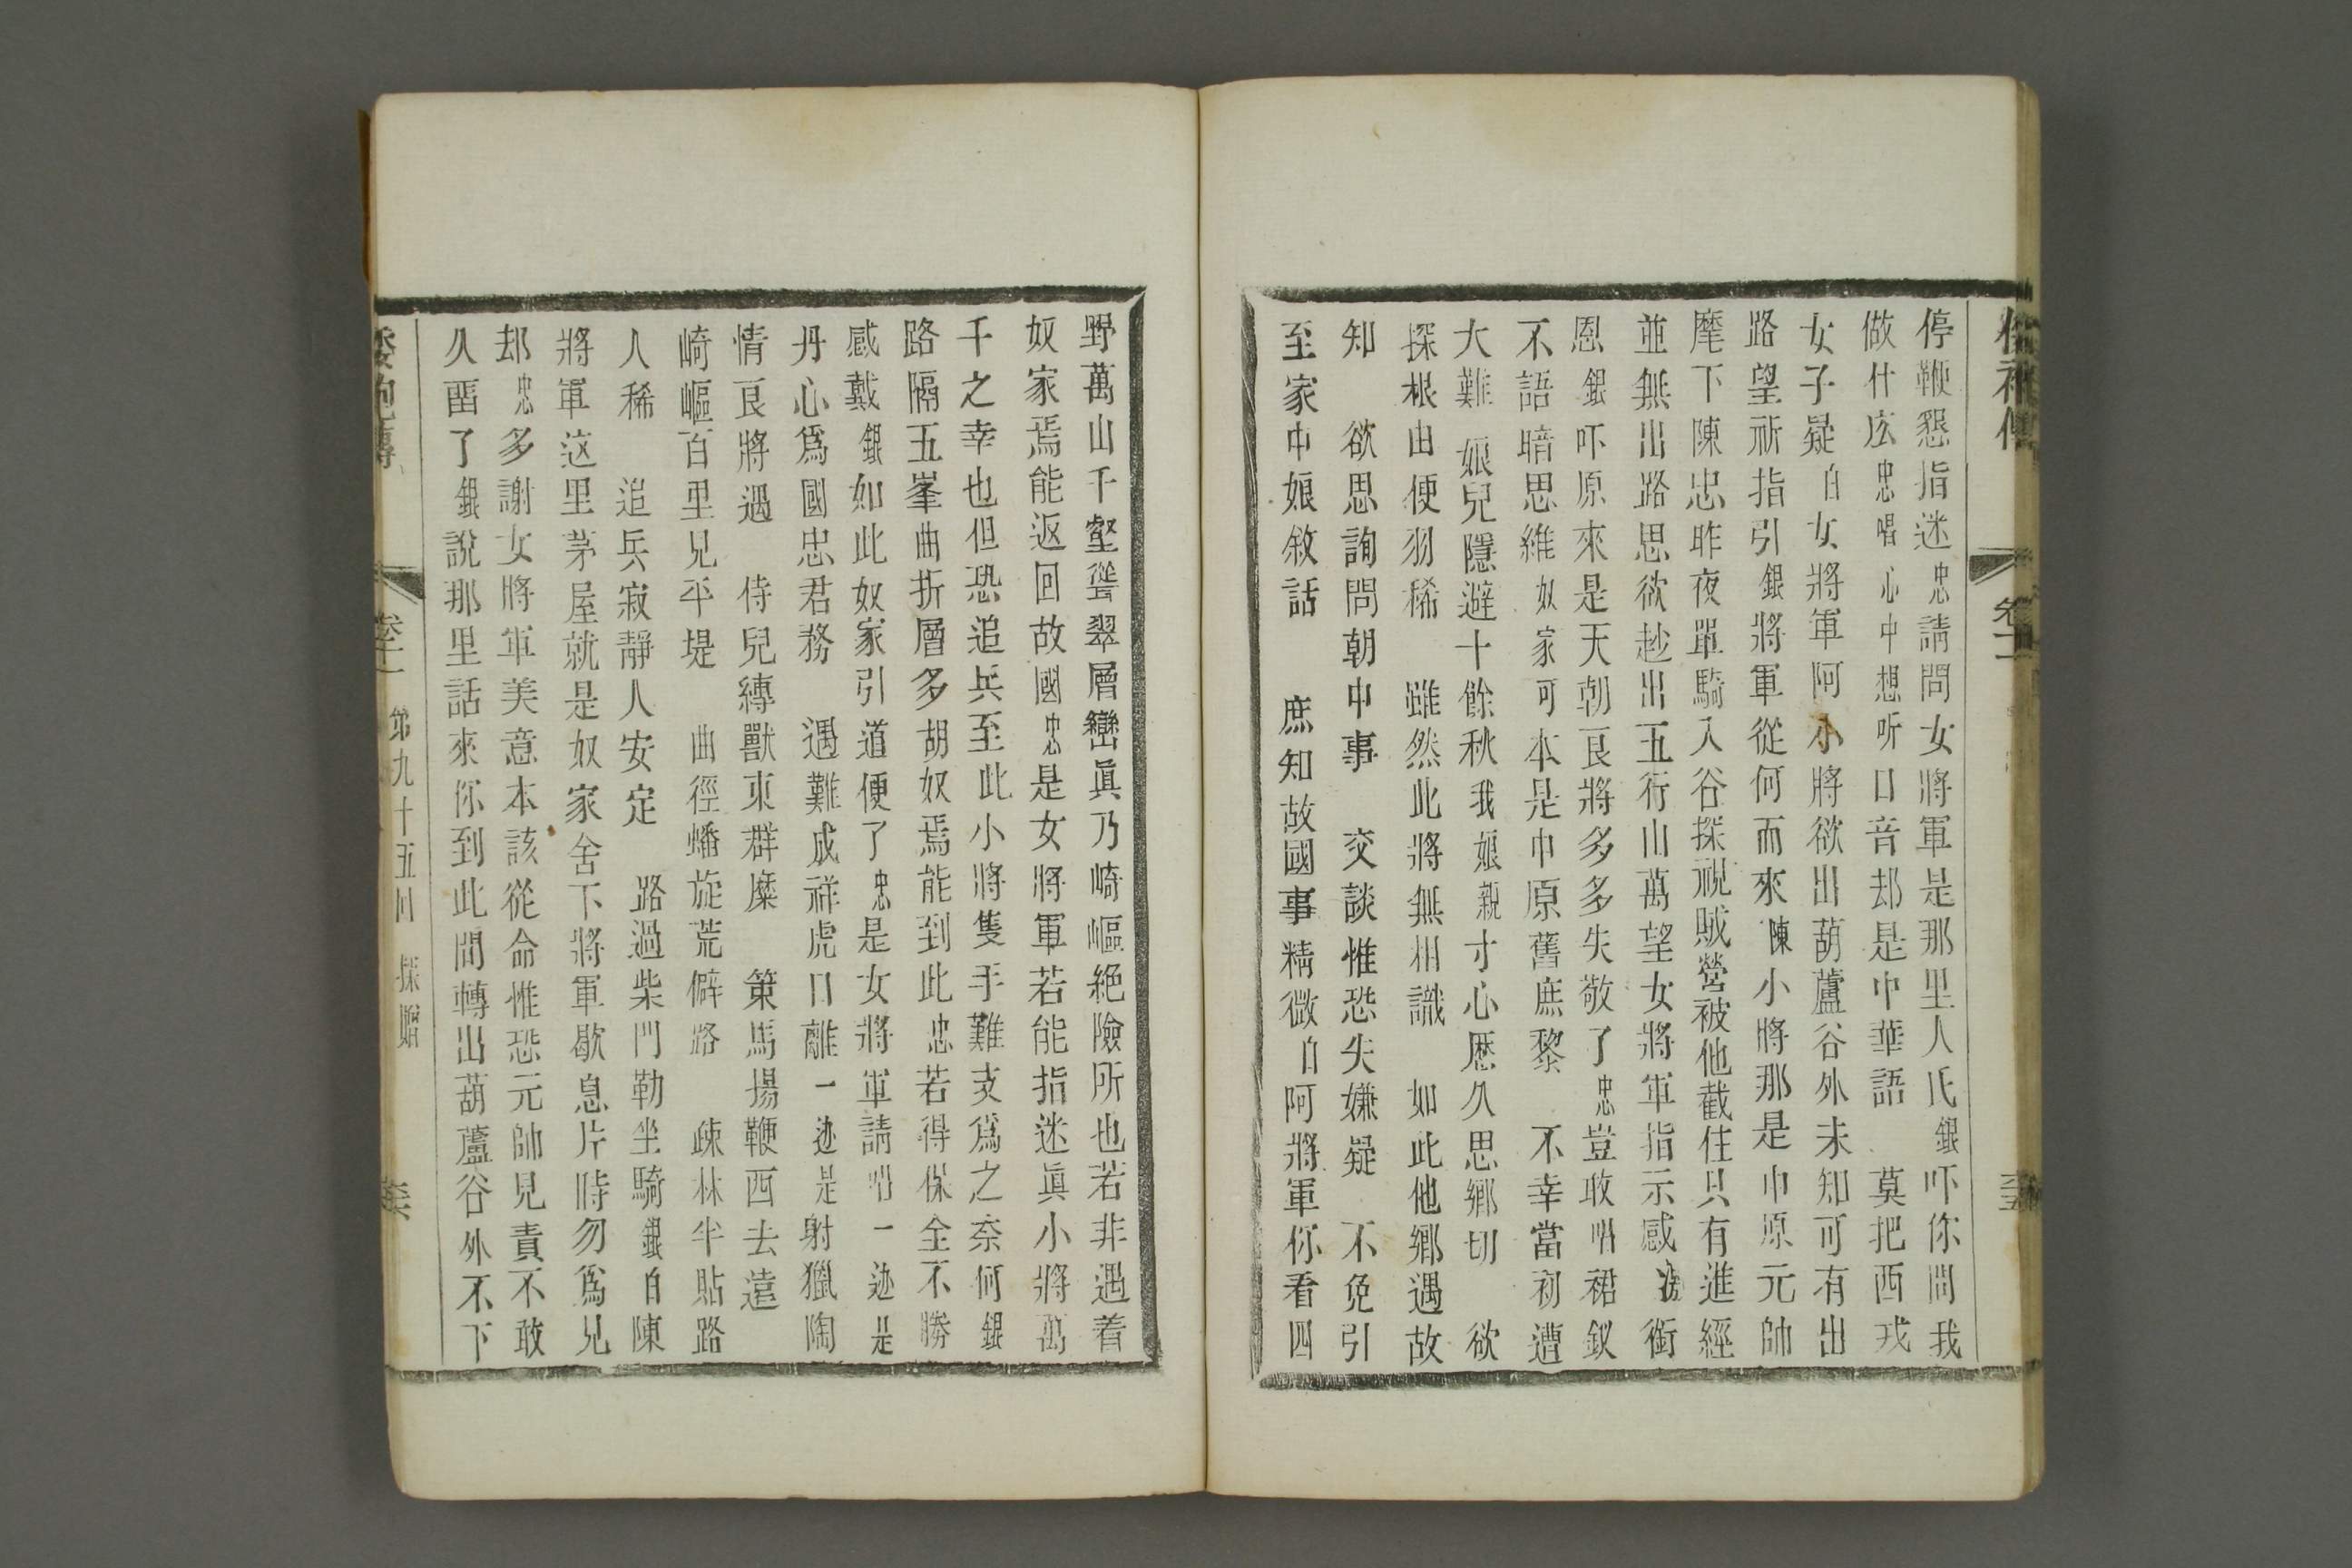 停鞭懇指迷忠請問女將軍是那里人氏銀吓你問我
做什庅忠唱心中想听口音却是中華語莫把西戎
女子疑白女將軍阿小將欲出葫蘆谷外未知可有出
路望祈指引銀將軍從何而來陳小將那是中原元帥
麾下陳忠昨夜單騎入谷探視賊營被他截住只有進經
並無出路思欲赵出五行山萬望女將軍指示感激銜
恩銀吓原來是天朝良將多多失敬了忠豈敢唱裙釵
不語暗思維奴家可本是中原舊庶黎不幸當初遭
大難娘兒隱避十餘秋我娘親寸心歷久思鄉切欲
探根由便羽稀雖然此將無相識如此他鄉遇故
知欲思詢問朝中事交談惟恐失嫌疑不免引
至家中娘敘話庶知故國事精微白阿將軍你看四
野萬山千壑聳翠層巒眞乃崎嶇絕險所也若非遇着
奴家焉能返回故國忠是女將軍若能指迷眞小將萬
千之幸也但恐追兵至此小將隻手難支爲之奈何銀
路隔五峯曲折層多胡奴焉能到此忠若得保全不勝
感戴銀如此奴家引道便了忠是女將軍請唱一迹是
丹心爲國忠君務遇難成祥虎口離一迹是射獵陶
情良將遇侍兒縳獸束群糜策馬揚鞭西去遠
崎嶇百里見平堤曲徑蟠旋荒僻路疎林半貼路
人稀追兵寂靜人安定路過柴門勒坐騎銀白陳
將軍这里茅屋就是奴家舍下將軍歇息片時勿爲見
却忠多謝女將軍美意本該從命惟恐元帥見責不敢
久畱了銀說那里話來你到此間轉出葫蘆谷外不下
卷十一 第九十五回 探贈